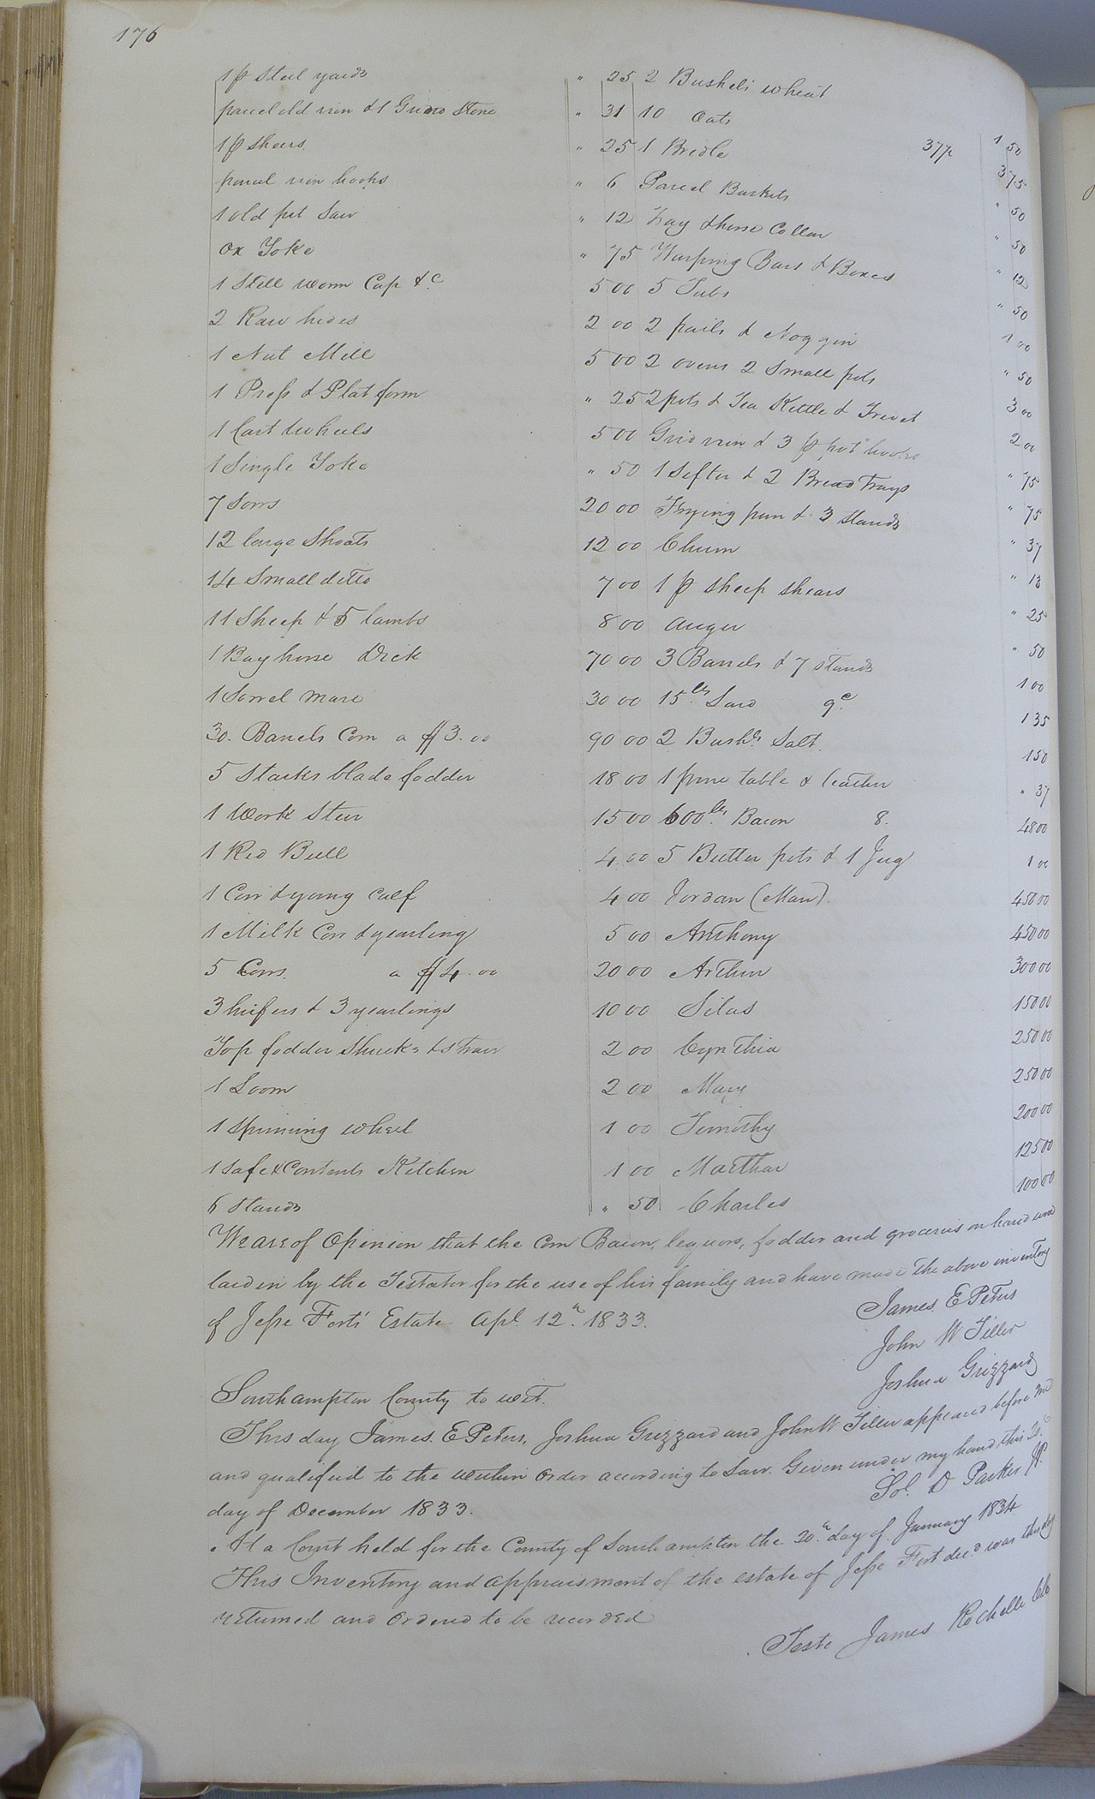 176
1 p Steel yards " 25
parcel old iron & 1 Grind Stone " 31
1 p shears " 25
parcel iron hooks " 6
1 old pit Saw " 12
Ox Yoke " 75
1 Still worm Cap &c 5 00
2 Raw hides 2 00
1 Nut Mill 5 00
1 Press & Plat form " 25
1 Cart Wheels 5 00
1 Single Yoke " 50
7 Sows 20 00
12 large Shoats 12 00
14 Small ditto 7 00
11 Sheep & 5 lambs 8 00
1 Bay horse Dick 70 00
1 Sorrel mare 30 00
30 Barrels Corn a $3.00 90 00
5 Stacks blade fodder 18 00
1 Work Steer 15 00
1 Red Bull 4 00
1 Cow & young calf 4 00
1 Milk Cow & yearling 5 00
5 Cows a $4.00 20 00
3 heifers & 3 yearlings 10 00
Top fodder Shucks & straw 2 00
1 Loom 2 00
1 spinning wheel 1 00
1 Safe & Contents Kitchen 1 00
6 Stands " 50
2 Bushels wheat 1 50
10 Oats 37½ 3 75
1 Bridle " 50
Parcel Baskets " 50
Hay & horse Collar " 12
Warping Bars & Boxes " 50
5 Tubs 1 00
2 pails & Noggin " 50
2 ovens 2 Small pots 3 00
2 pots & Tea Kettle & Trivet 2 00
Grid iron & 3 p pot hooks " 75
1 Sifter & 2 Bread Trays " 75
Frying pan & 3 stands " 37
Churn " 13
1 p sheep shears " 25
auger " 50
3 Barrels & 7 stands 1 00
15 lbs Lard 9c 1 35
2 Bushs Salt 1 50
1 pine table & leather " 37
600 lbs Bacon 8. 48 00
5 Butter pots & 1 Jug 1 00
Jordan (Man) 450 00
Anthony 450 00
Arthur 300 00
Silas 150 00
Cynthia 250 00
Mary 250 00
Timothy 200 00
Marthar 125 00
Charles 100 00
We are of Opinion that the Corn Bacon, liquors, fodder and groceries on hand was
laid in by the Testator for the use of his family and have made the above inventory
of Jesse Forts' Estate Apl. 12th 1833.
James E Peters
John W Tiller
Joshua Grizzard
Southampton County to wit.
This day James. E Peters, Joshua Grizzard and John W Tiller appeared before me
and qualified to the within order according to Law. Given under my hand this
day of December 1833.
Sol. D Parker JP.
At a Court held for the County of Southampton the 20th day of January 1834
This Inventory and appraisment of the estate of Jesse Fort decd was this day
returned and Ordered to be recorded
Teste James Rochelle Clk